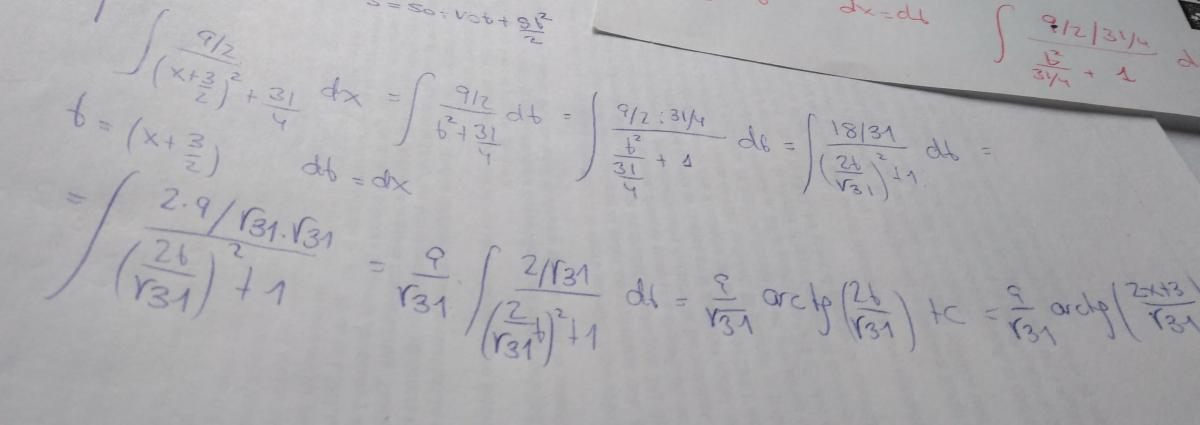 dx=dt ∫ 9/2/31/4 / (t²/31/4 + 1)
∫ 9/2 / ((x+3/2)² + 31/4) dx = ∫ 9/2 / (t² + 31/4) dt = ∫ 9/2 : 31/4 / (t²/(31/4) + 1) dt = ∫ 18/31 / ((2t/√31)² + 1) dt =
t = (x+3/2) dt = dx
= ∫ 2·9/√31·√31 / ((2t/√31)² + 1) = 9/√31 · ∫ 2/√31 / ((2/√31 t)² + 1) dt = 9/√31 arctg(2t/√31) + c = 9/√31 arctg(2x+3/√31